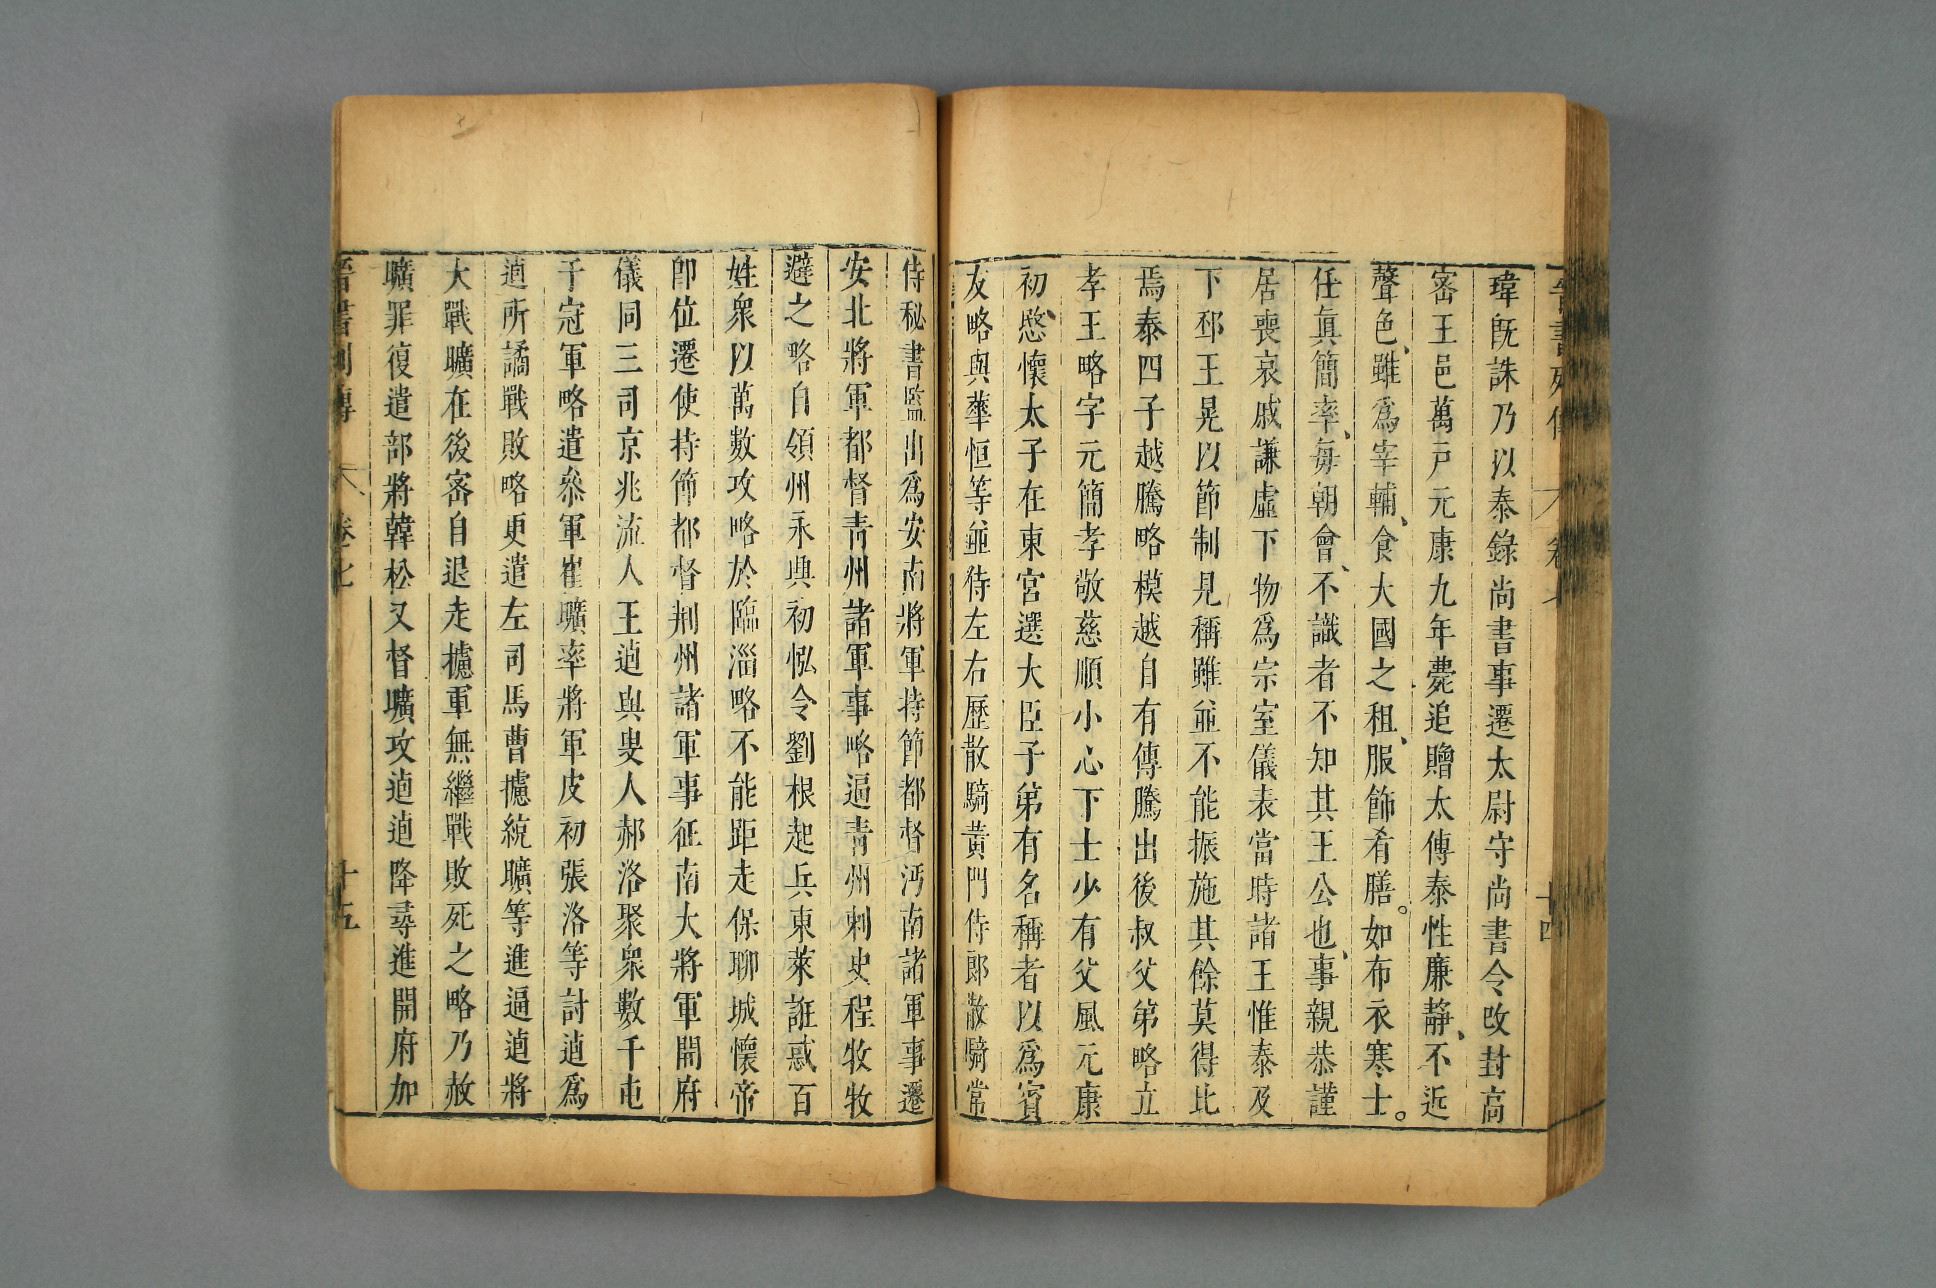 晉書列傳 卷七 十四
瑋旣誅乃以泰錄尚書事遷太尉守尚書令改封高
密王邑萬戸元康九年薨追贈太傅泰性廉靜、不近
聲色、雖爲宰輔、食大國之租、服飾肴膳。如布衣寒士。
任眞簡率、每朝會、不識者不知其王公也、事親恭謹
居喪哀戚謙虛下物爲宗室儀表當時諸王惟泰及
下邳王晃以節制見稱雖並不能振施其餘莫得比
焉泰四子越騰略模越自有傳騰出後叔父弟略立
孝王略字元簡孝敬慈順小心下士少有父風元康
初、愍懷太子在東宮選大臣子弟有名稱者以爲賓
友略與華恒等並侍左右歷散騎黃門侍郎散騎常
侍秘書監出爲安南將軍持節都督沔南諸軍事遷
安北將軍都督靑州諸軍事略逼靑州刺史程牧牧
避之略自領州永興初㤝令劉根起兵東萊誑惑百
姓衆以萬數攻略於臨淄略不能距走保聊城懷帝
卽位遷使持節都督荆州諸軍事征南大將軍開府
儀同三司京兆流人王逌與叟人郝洛聚衆數千屯
于冠軍略遣叅軍崔曠率將軍皮初張洛等討逌爲
逌所譎戰敗略更遣左司馬曹攄統曠等進逼逌將
大戰曠在後密自退走攄軍無繼戰敗死之略乃赦
曠罪復遣部將韓松又督曠攻逌逌降尋進開府加
晉書列傳 卷七 十五